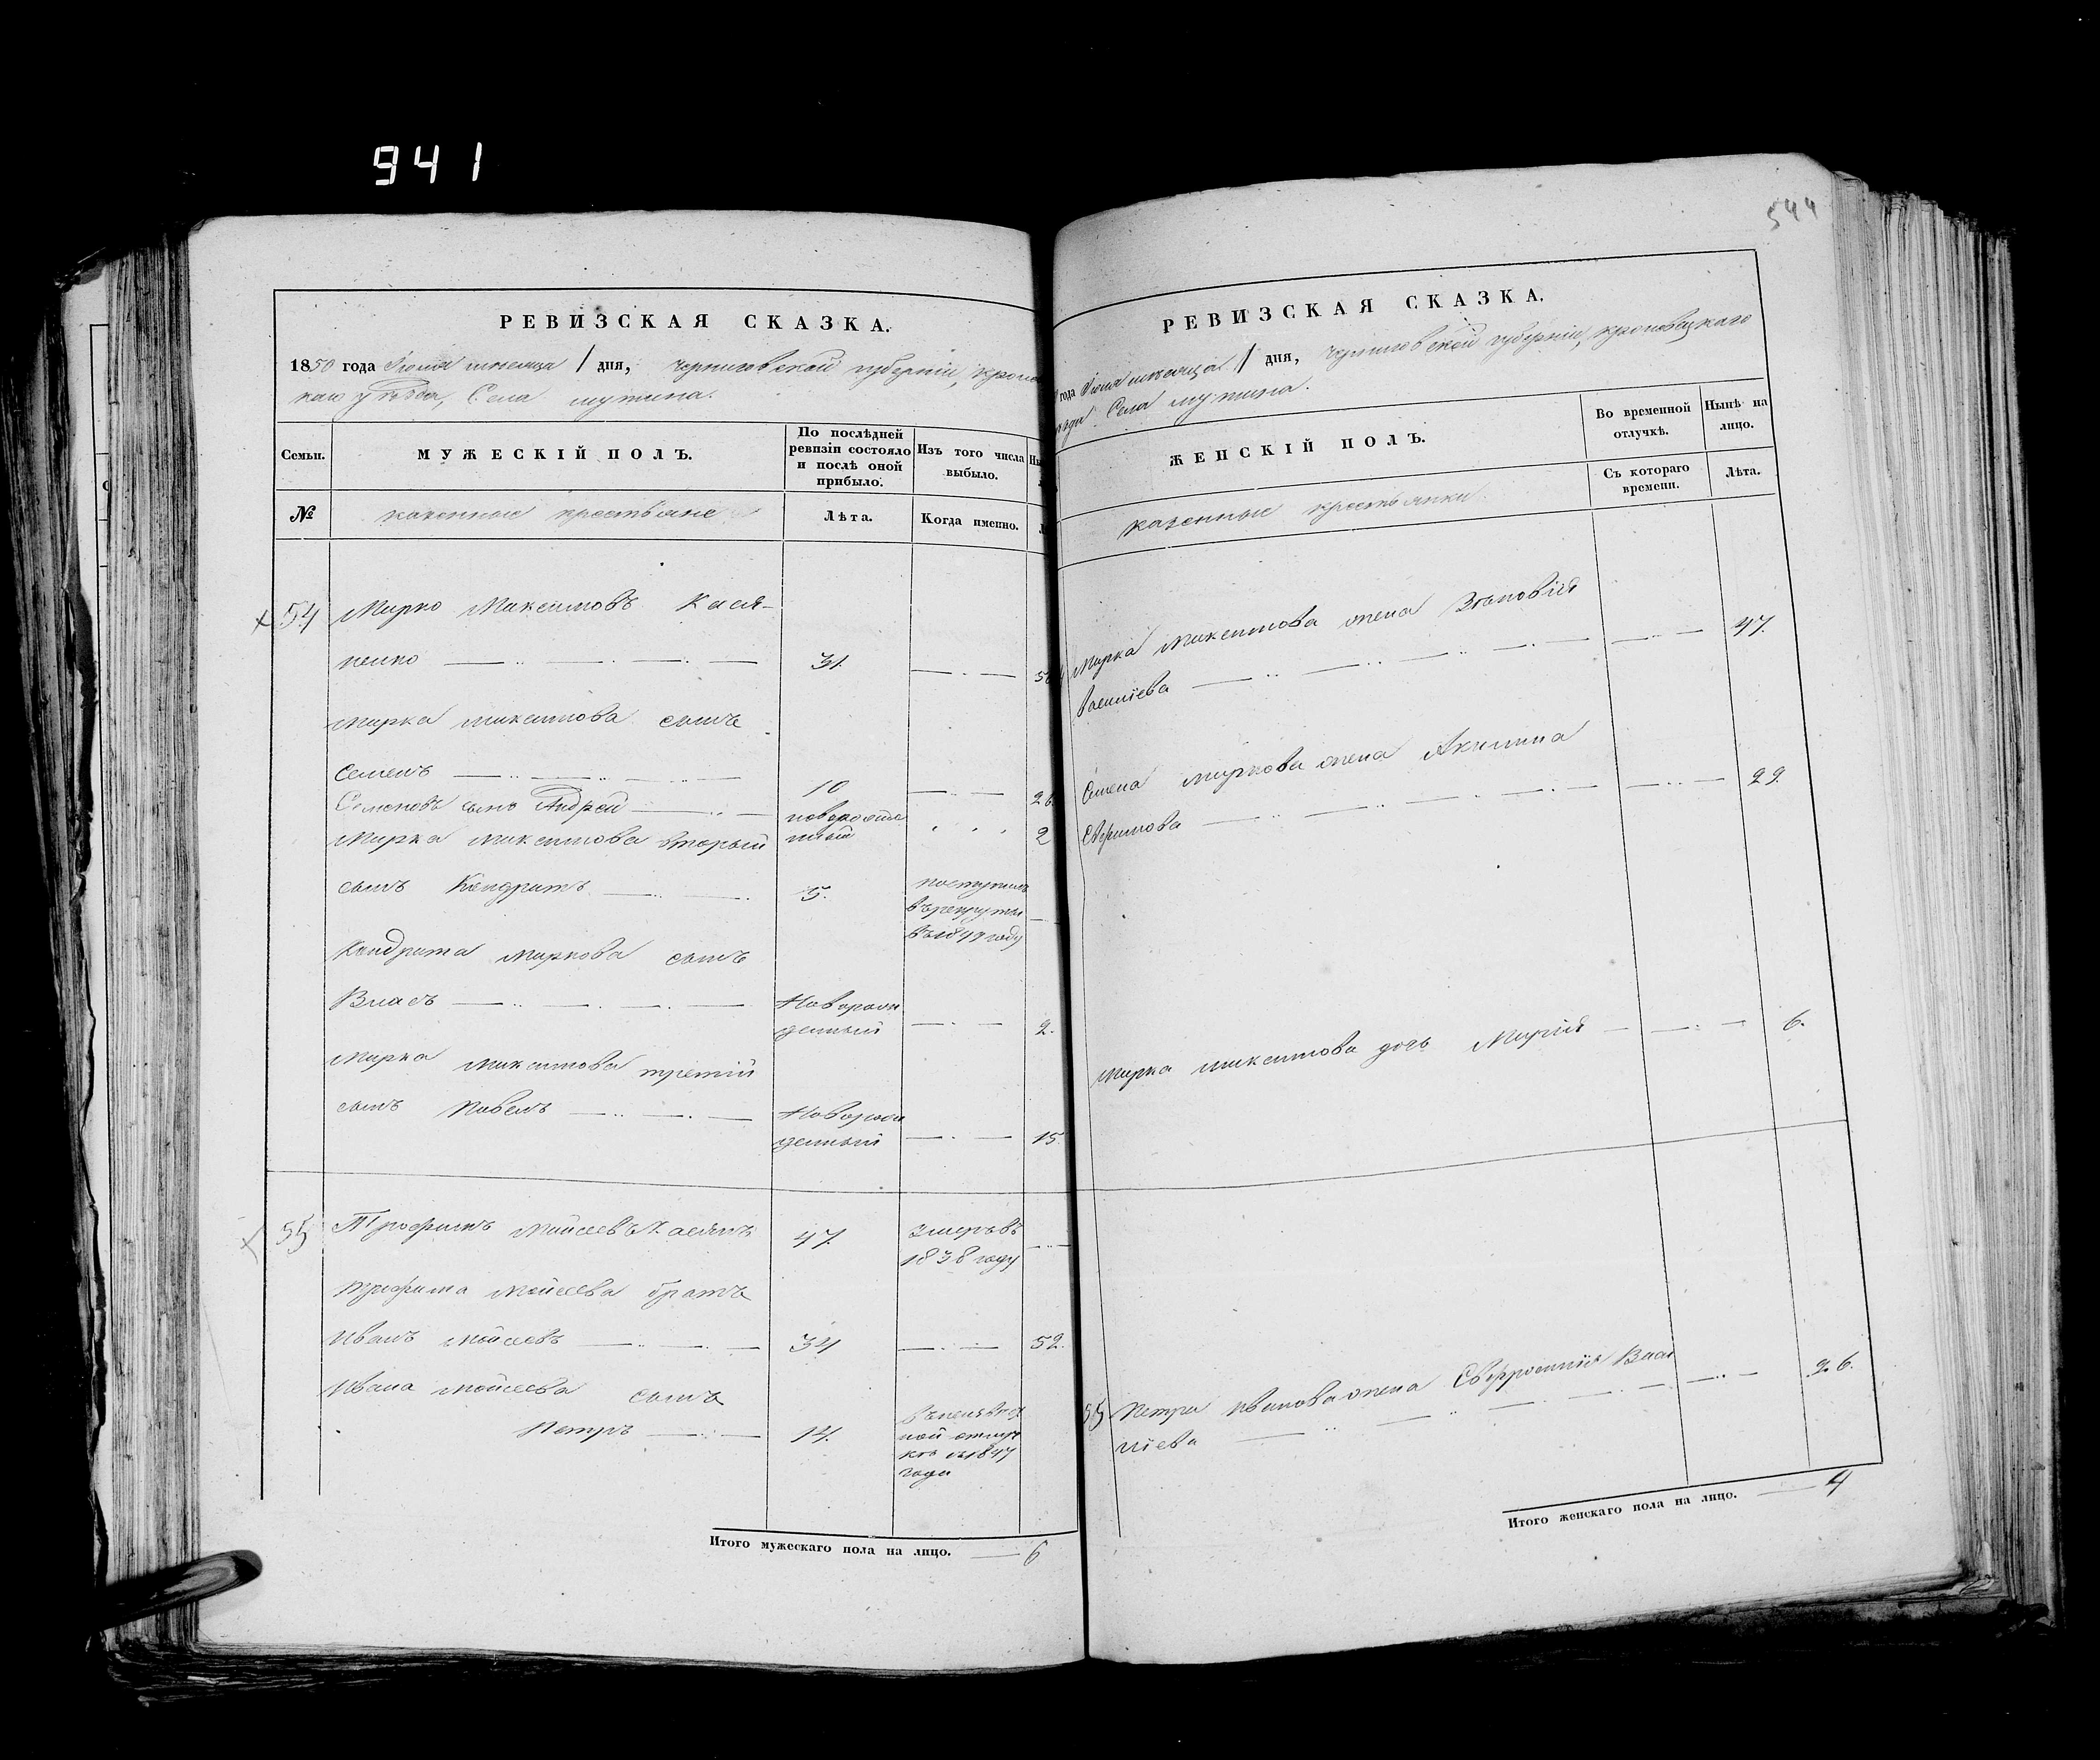 941
РЕВИЗСКАЯ СКАЗКА.
1850 года Іюня мѣсяца 1 дня, Черниговской губерніи, Кролѣ
каго уѣзда, Села Мутина.
Семьи.
МУЖЕСКІЙ ПОЛЪ.
По послѣдней ревизіи состояло и послѣ оной прибыло.
Изъ того числа выбыло.
№
казенные крестьяне
Лѣта.
Когда именно.
54 Марко Максимовъ Кася-
ненко 31.
Марка Максимова сынъ
Семенъ 10
Семеновъ сынъ Андрей новорожде 2
Марка Максимова вторый ный
сынъ Кондратъ 5. поступилъ
въ рекруты
въ 1849 году
Кондрата Маркова сынъ
Власъ Новорож
денный 2.
Марка Максимова третій
сынъ Павелъ Новорож
денный 15
55 Трофимъ Мойсеевъ Касян 47 Умеръ въ
1838 году
Трофима Мойсеева братъ
Иванъ Мойсеевъ 34 52.
Ивана Мойсеева сынъ
Петръ 14.
1847
года
Итого мужескаго пола на лицо. 6
544
РЕВИЗСКАЯ СКАЗКА.
года Іюня мѣсяца 1 дня, Черниговской губерніи, Кролевецкаго
Села Мутина.
ЖЕНСКІЙ ПОЛЪ.
Во временной отлучкѣ.
Нынѣ на лицо.
казенные крестьянки
Съ котораго времени.
Лѣта.
Марка Максимова жена Зѣновія 47.
Василіева
Семена Маркова жена Акилина 29
Марка Максимова дочь Марія 6.
55 Петра Иванова жена Евфросинія Васи 26.
ліева
Итого женскаго пола на лицо. 4